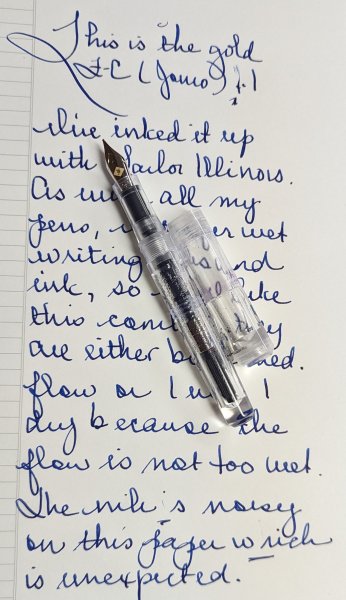 This is the gold
I-C (Jamo) f.1
I've inked it up
with Sailor Illinois.
As with all my
pens, wet
writing and
ink, so like
this
are either
flow or I
dry because the
flow is not too wet.
The nib is noisy
on this paper which
is unexpected.